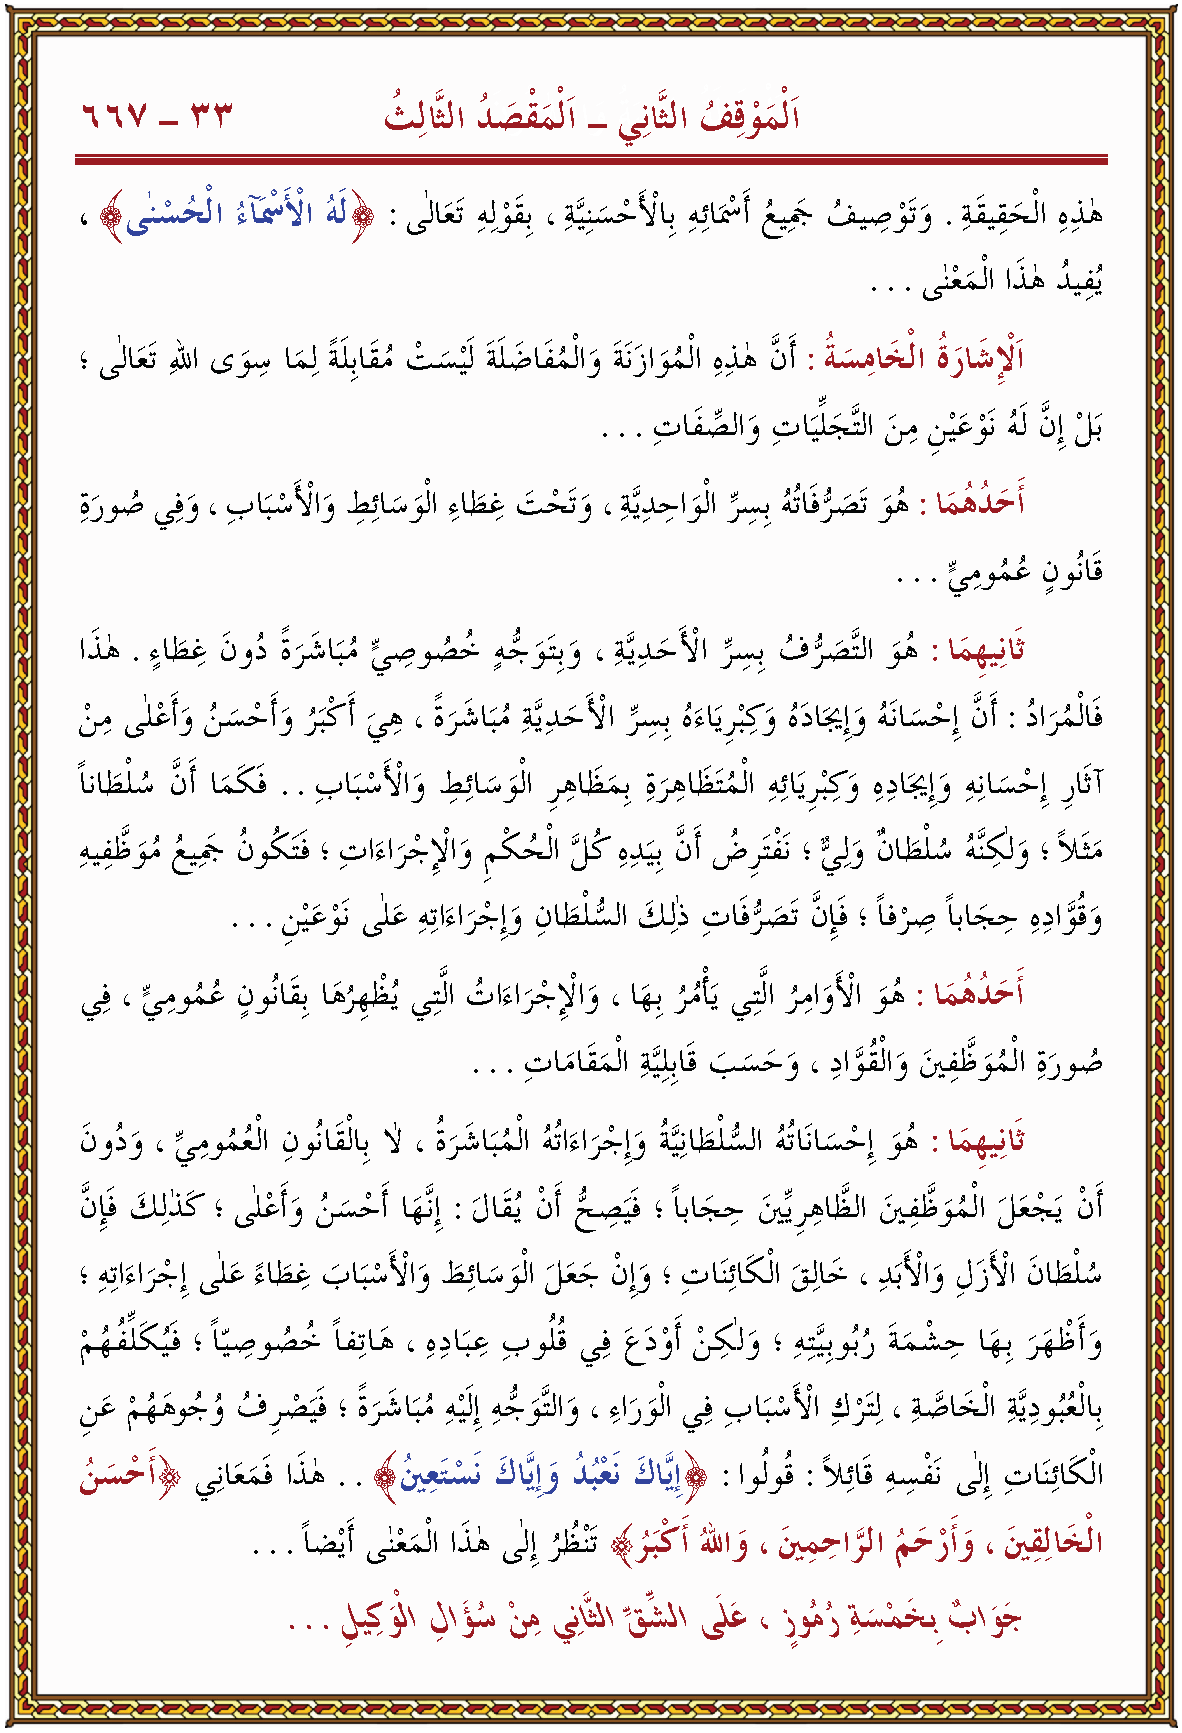 اَلْمَوْقِفُ الثَّانِي ــ اَلْمَقْصَدُ الثَّالِثُ ٣٣ ــ ٦٦٧
هٰذِهِ الْحَقِيقَةِ . وَتَوْصِيفُ جَمِيعُ أَسْمَائِهِ بِالْأَحْسَنِيَّةِ ، بِقَوْلِهِ تَعَالٰى : ﴿لَهُ الْأَسْمَآءُ الْحُسْنٰى﴾ ،
يُفِيدُ هٰذَا الْمَعْنٰى . . .
اَلْإِشَارَةُ الْخَامِسَةُ : أَنَّ هٰذِهِ الْمُوَازَنَةَ وَالْمُفَاضَلَةَ لَيْسَتْ مُقَابِلَةً لِمَا سِوَى اللهِ تَعَالٰى ؛
بَلْ إِنَّ لَهُ نَوْعَيْنِ مِنَ التَّجَلِّيَاتِ وَالصِّفَاتِ . . .
أَحَدُهُمَا : هُوَ تَصَرُّفَاتُهُ بِسِرِّ الْوَاحِدِيَّةِ ، وَتَحْتَ غِطَاءِ الْوَسَائِطِ وَالْأَسْبَابِ ، وَفِي صُورَةِ
قَانُونٍ عُمُومِيٍّ . . .
ثَانِيهِمَا : هُوَ التَّصَرُّفُ بِسِرِّ الْأَحَدِيَّةِ ، وَبِتَوَجُّهٍ خُصُوصِيٍّ مُبَاشَرَةً دُونَ غِطَاءٍ . هٰذَا
فَالْمُرَادُ : أَنَّ إِحْسَانَهُ وَإِيجَادَهُ وَكِبْرِيَاءَهُ بِسِرِّ الْأَحَدِيَّةِ مُبَاشَرَةً ، هِيَ أَكْبَرُ وَأَحْسَنُ وَأَعْلٰى مِنْ
آثَارِ إِحْسَانِهِ وَإِيجَادِهِ وَكِبْرِيَائِهِ الْمُتَظَاهِرَةِ بِمَظَاهِرِ الْوَسَائِطِ وَالْأَسْبَابِ . . فَكَمَا أَنَّ سُلْطَاناً
مَثَلاً ؛ وَلكِنَّهُ سُلْطَانٌ وَلِيٌّ ؛ نَفْتَرِضُ أَنَّ بِيَدِهِ كُلَّ الْحُكْمِ وَالْإِجْرَاءَاتِ ؛ فَتَكُونُ جَمِيعُ مُوَظَّفِيهِ
وَقُوَّادِهِ حِجَاباً صِرْفاً ؛ فَإِنَّ تَصَرُّفَاتِ ذٰلِكَ السُّلْطَانِ وَإِجْرَاءَاتِهِ عَلٰى نَوْعَيْنِ . . .
أَحَدُهُمَا : هُوَ الْأَوَامِرُ الَّتِي يَأْمُرُ بِهَا ، وَالْإِجْرَاءَاتُ الَّتِي يُظْهِرُهَا بِقَانُونٍ عُمُومِيٍّ ، فِي
صُورَةِ الْمُوَظَّفِينَ وَالْقُوَّادِ ، وَحَسَبَ قَابِلِيَّةِ الْمَقَامَاتِ . . .
ثَانِيهِمَا : هُوَ إِحْسَانَاتُهُ السُّلْطَانِيَّةُ وَإِجْرَاءَاتُهُ الْمُبَاشَرَةُ ، لاٰ بِالْقَانُونِ الْعُمُومِيِّ ، وَدُونَ
أَنْ يَجْعَلَ الْمُوَظَّفِينَ الظَّاهِرِيِّينَ حِجَاباً ؛ فَيَصِحُّ أَنْ يُقَالَ : إِنَّهَا أَحْسَنُ وَأَعْلٰى ؛ كَذٰلِكَ فَإِنَّ
سُلْطَانَ الْأَزَلِ وَالْأَبَدِ ، خَالِقَ الْكَائِنَاتِ ؛ وَإِنْ جَعَلَ الْوَسَائِطَ وَالْأَسْبَابَ غِطَاءً عَلٰى إِجْرَاءَاتِهِ ؛
وَأَظْهَرَ بِهَا حِشْمَةَ رُبُوبِيَّتِهِ ؛ وَلٰكِنْ أَوْدَعَ فِي قُلُوبِ عِبَادِهِ ، هَاتِفاً خُصُوصِيّاً ؛ فَيُكَلِّفُهُمْ
بِالْعُبُودِيَّةِ الْخَاصَّةِ ، لِتَرْكِ الْأَسْبَابِ فِي الْوَرَاءِ ، وَالتَّوَجُّهِ إِلَيْهِ مُبَاشَرَةً ؛ فَيَصْرِفُ وُجُوهَهُمْ عَنِ
الْكَائِنَاتِ إِلٰى نَفْسِهِ قَائِلاً : قُولُوا : ﴿إِيَّاكَ نَعْبُدُ وَإِيَّاكَ نَسْتَعِينُ﴾ . . هٰذَا فَمَعَانِي ﴿أَحْسَنُ
الْخَالِقِينَ ، وَأَرْحَمُ الرَّاحِمِينَ ، وَاللهُ أَكْبَرُ﴾ تَنْظُرُ إِلٰى هٰذَا الْمَعْنٰى أَيْضاً . . .
جَوَابٌ بِخَمْسَةِ رُمُوزٍ ، عَلَى الشِّقِّ الثَّانِي مِنْ سُؤَالِ الْوَكِيلِ . . .